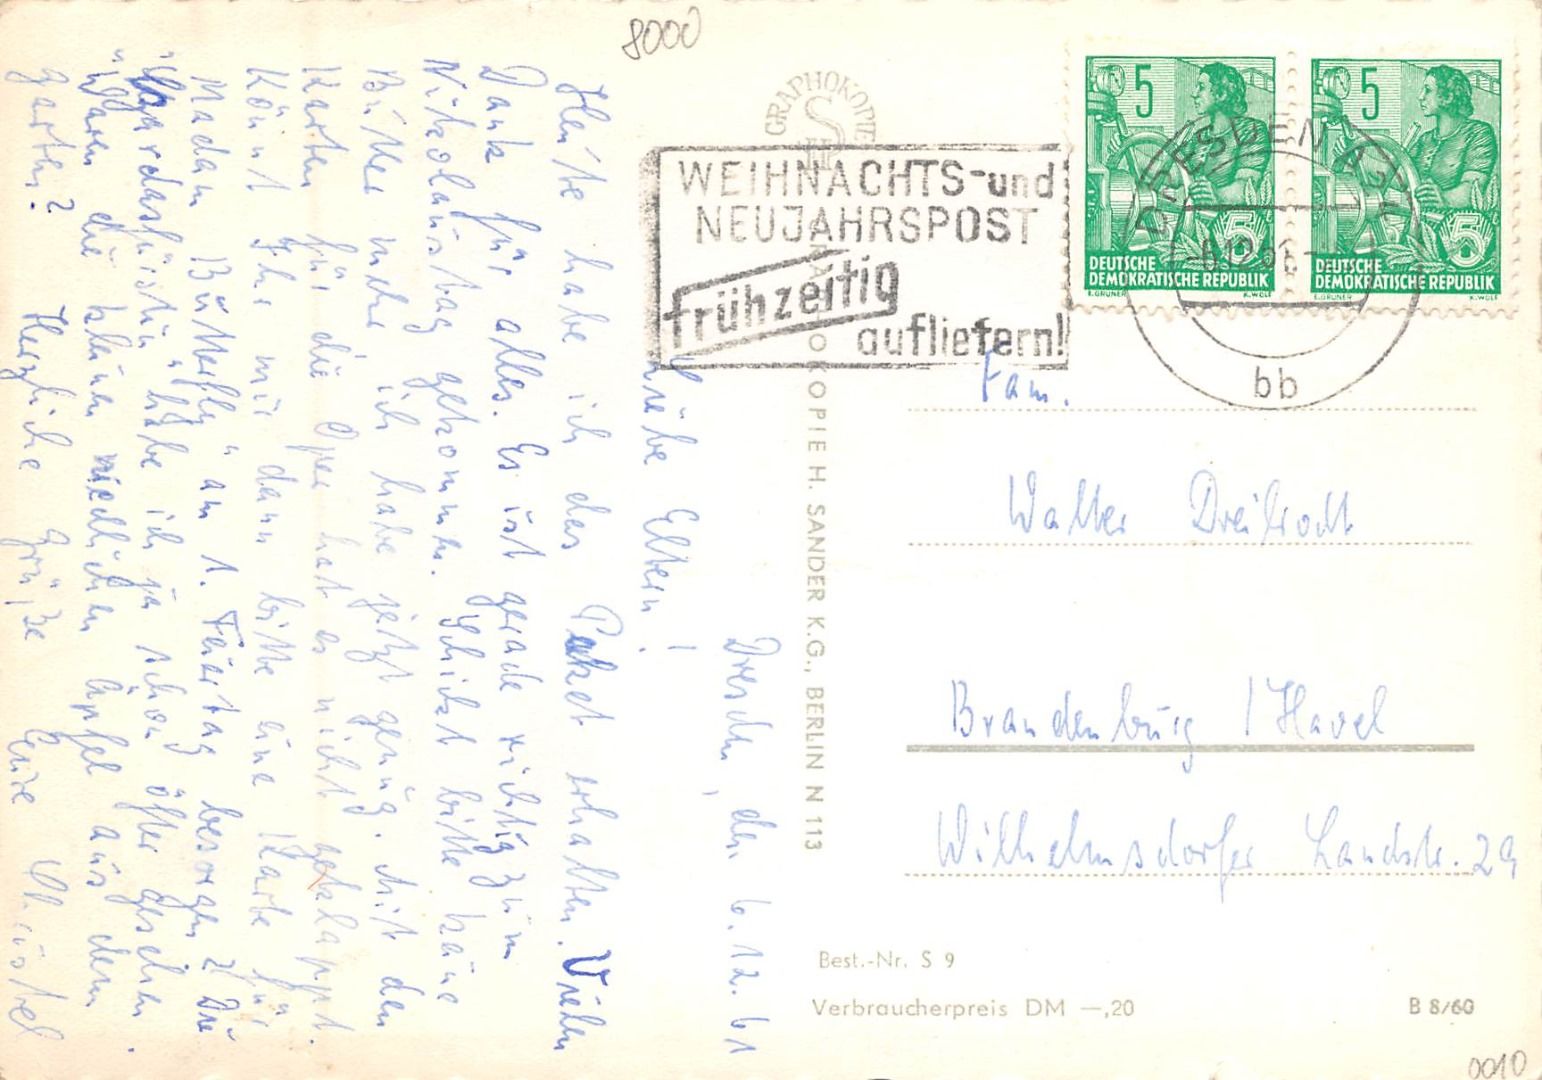 8000
GRAPHOKOPIE
H S
WEIHNACHTS- und
NEUJAHRSPOST
frühzeitig
aufliefern!
5
DEUTSCHE
DEMOKRATISCHE REPUBLIK
E.GRUNER K.WOLF
5
DEUTSCHE
DEMOKRATISCHE REPUBLIK
E.GRUNER K.WOLF
DRESDEN A
bb
Dresden, den 6.12.61
Liebe Eltern!
Heute habe ich das Paket erhalten. Vielen
Dank für alles. Es ist gerade richtig zum
Nikolaustag gekommen. Schickt bitte keine
Butter mehr ich habe jetzt genug. Mit den
Karten für die Oper hat es nicht geklappt.
Könnt Ihr mir dann bitte eine Karte für
"Madam Butterfly" am 1. Feiertag besorgen? Die
"Csardasfürstin" habe ich ja schon öfter gesehen.
Waren die kleinen niedlichen Äpfel aus dem
Garten? Herzliche Grüße Eure Christel
GRAPHOKOPIE H. SANDER K.G., BERLIN N 113
Fam.
Walter Dreibrodt
Brandenburg / Havel
Wilhelmsdorfer Landstr. 29
Best.-Nr. S 9
Verbraucherpreis DM —,20
B 8/60
0010